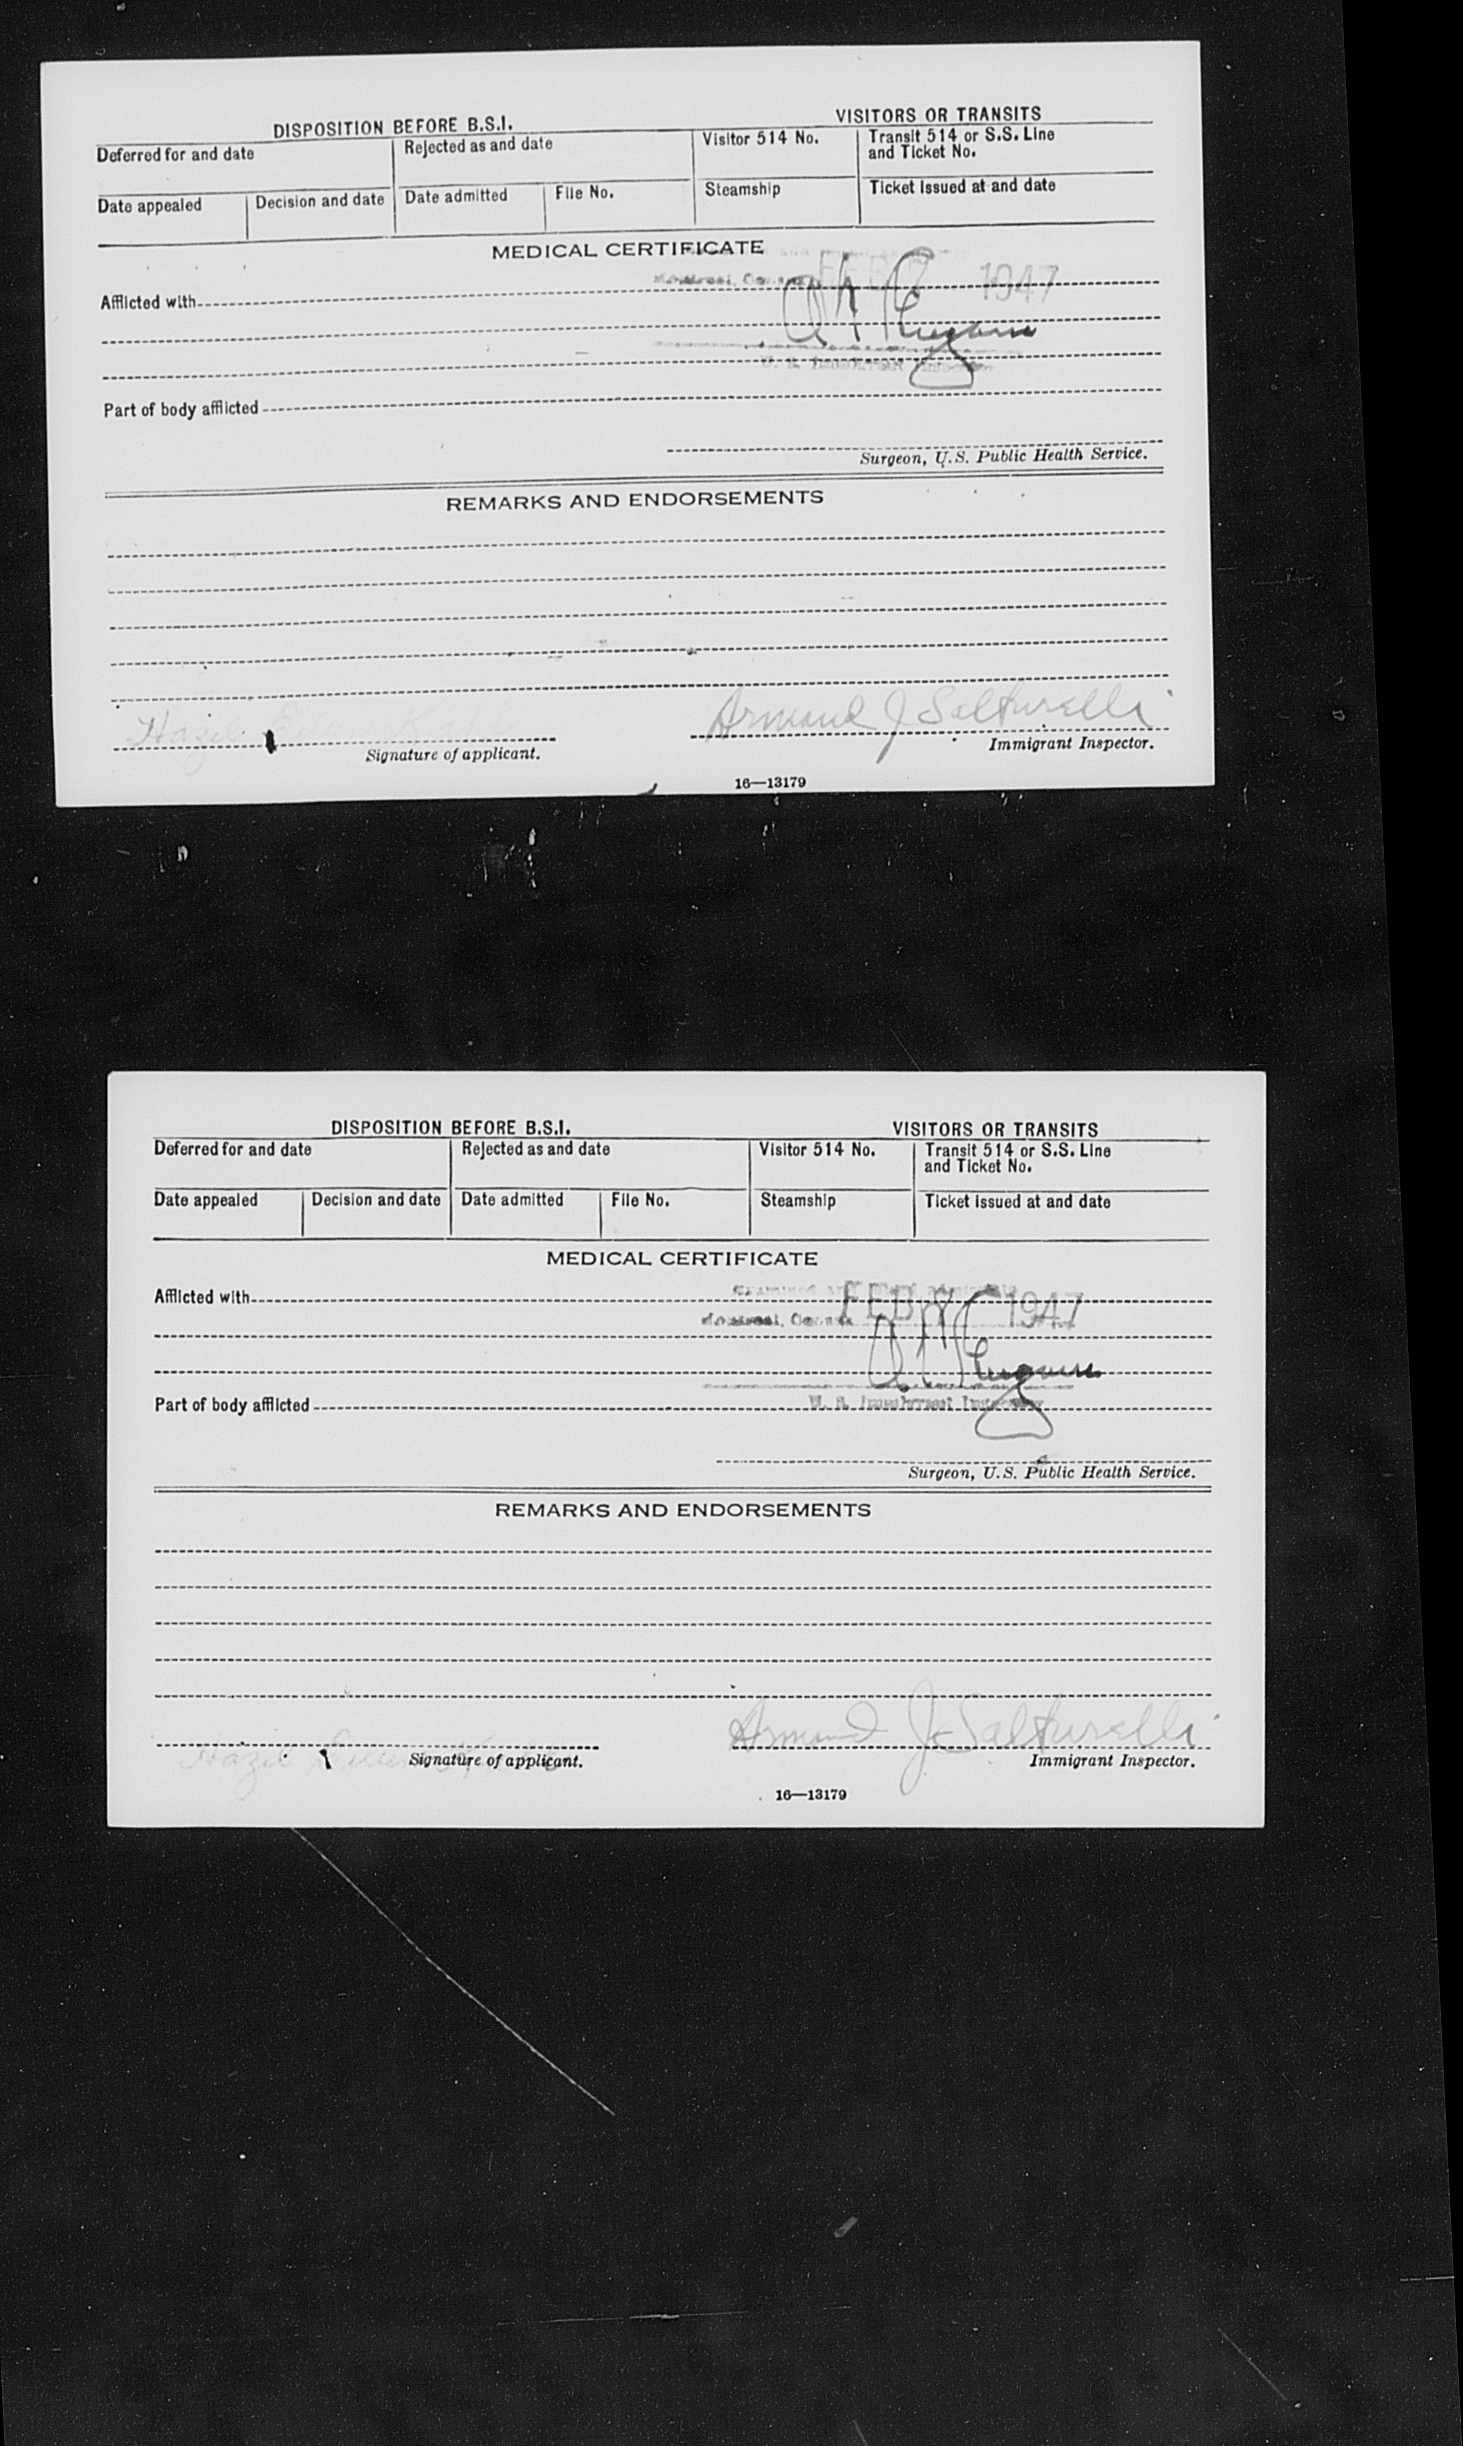 DISPOSITION BEFORE B.S.I. VISITORS OR TRANSITS
Deferred for and date Rejected as and date Visitor 514 No. Transit 514 or S.S. Line
and Ticket No.
Date appealed Decision and date Date admitted File No. Steamship Ticket issued at and date
MEDICAL CERTIFICATE
Montreal, Canada FEB 1947
Afflicted with
U. S. Immigrant Inspector
Part of body afflicted
Surgeon, U.S. Public Health Service.
REMARKS AND ENDORSEMENTS
Hazel Armand J Salturelli
Signature of applicant. Immigrant Inspector.
16—13179
DISPOSITION BEFORE B.S.I. VISITORS OR TRANSITS
Deferred for and date Rejected as and date Visitor 514 No. Transit 514 or S.S. Line
and Ticket No.
Date appealed Decision and date Date admitted File No. Steamship Ticket issued at and date
MEDICAL CERTIFICATE
Afflicted with
Montreal, Canada FEB 1947
Part of body afflicted U. S. Immigrant Inspector
Surgeon, U.S. Public Health Service.
REMARKS AND ENDORSEMENTS
Hazel Armand J. Salturelli
Signature of applicant. Immigrant Inspector.
16—13179